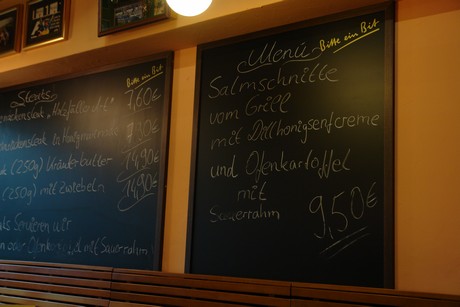 Bitte ein Bit
Steaks
"Holzfäller Art" 7,60€
in Honigmarinade
(250g) Kräuterbutter 14,90€
(250g) mit Zwiebeln 14,90€
Servieren wir
oder Ofenkartoffel mit Sauerrahm
Menü Bitte ein Bit
Salmschnitte
vom Grill
mit Dillhonigsenfcreme
und Ofenkartoffel
mit
Sauerrahm 9,50€